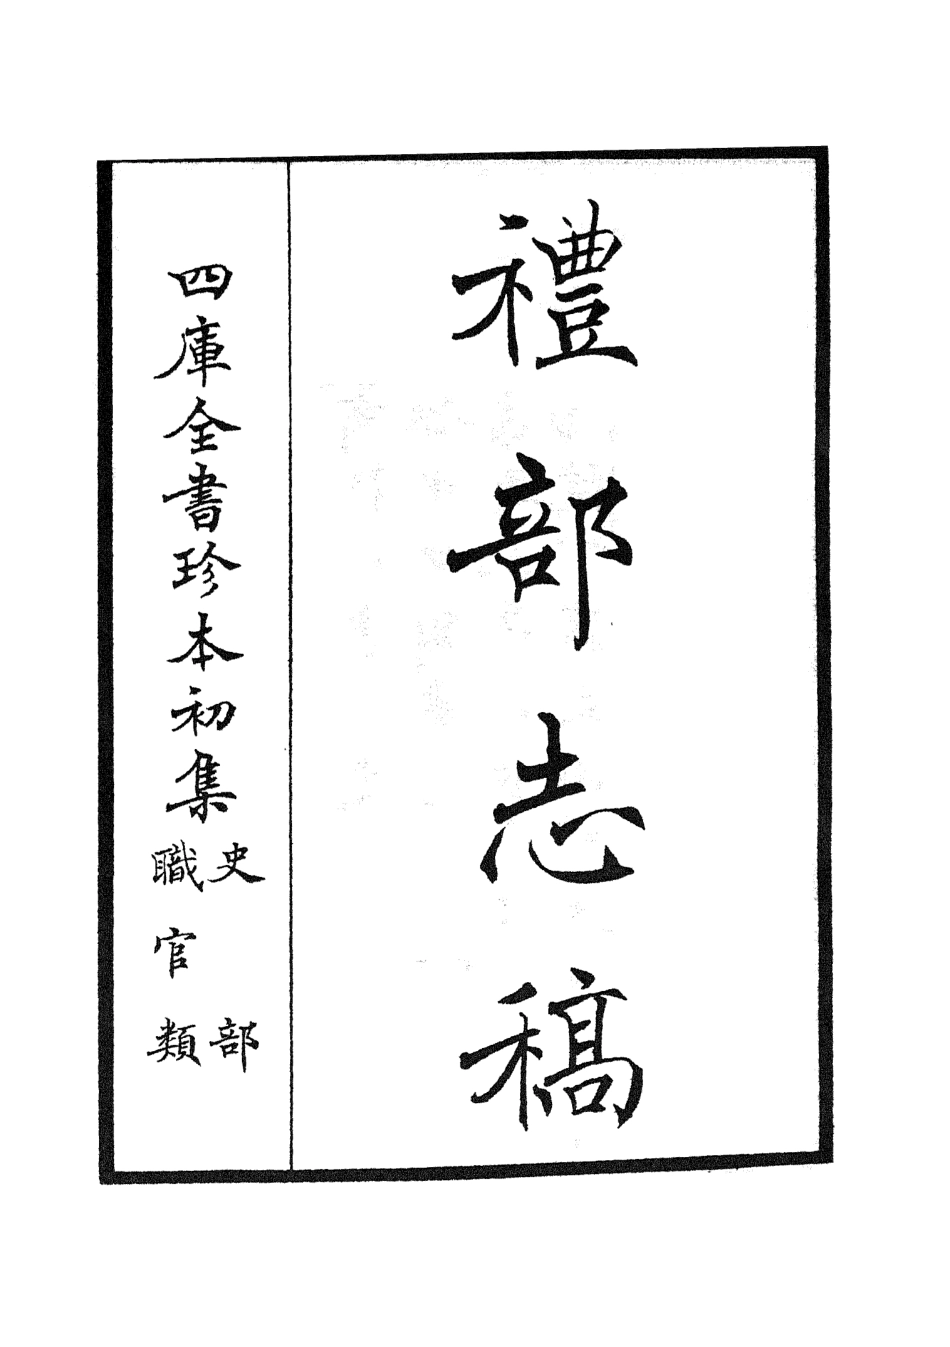 禮部志稿
四庫全書珍本初集
史部
職官類